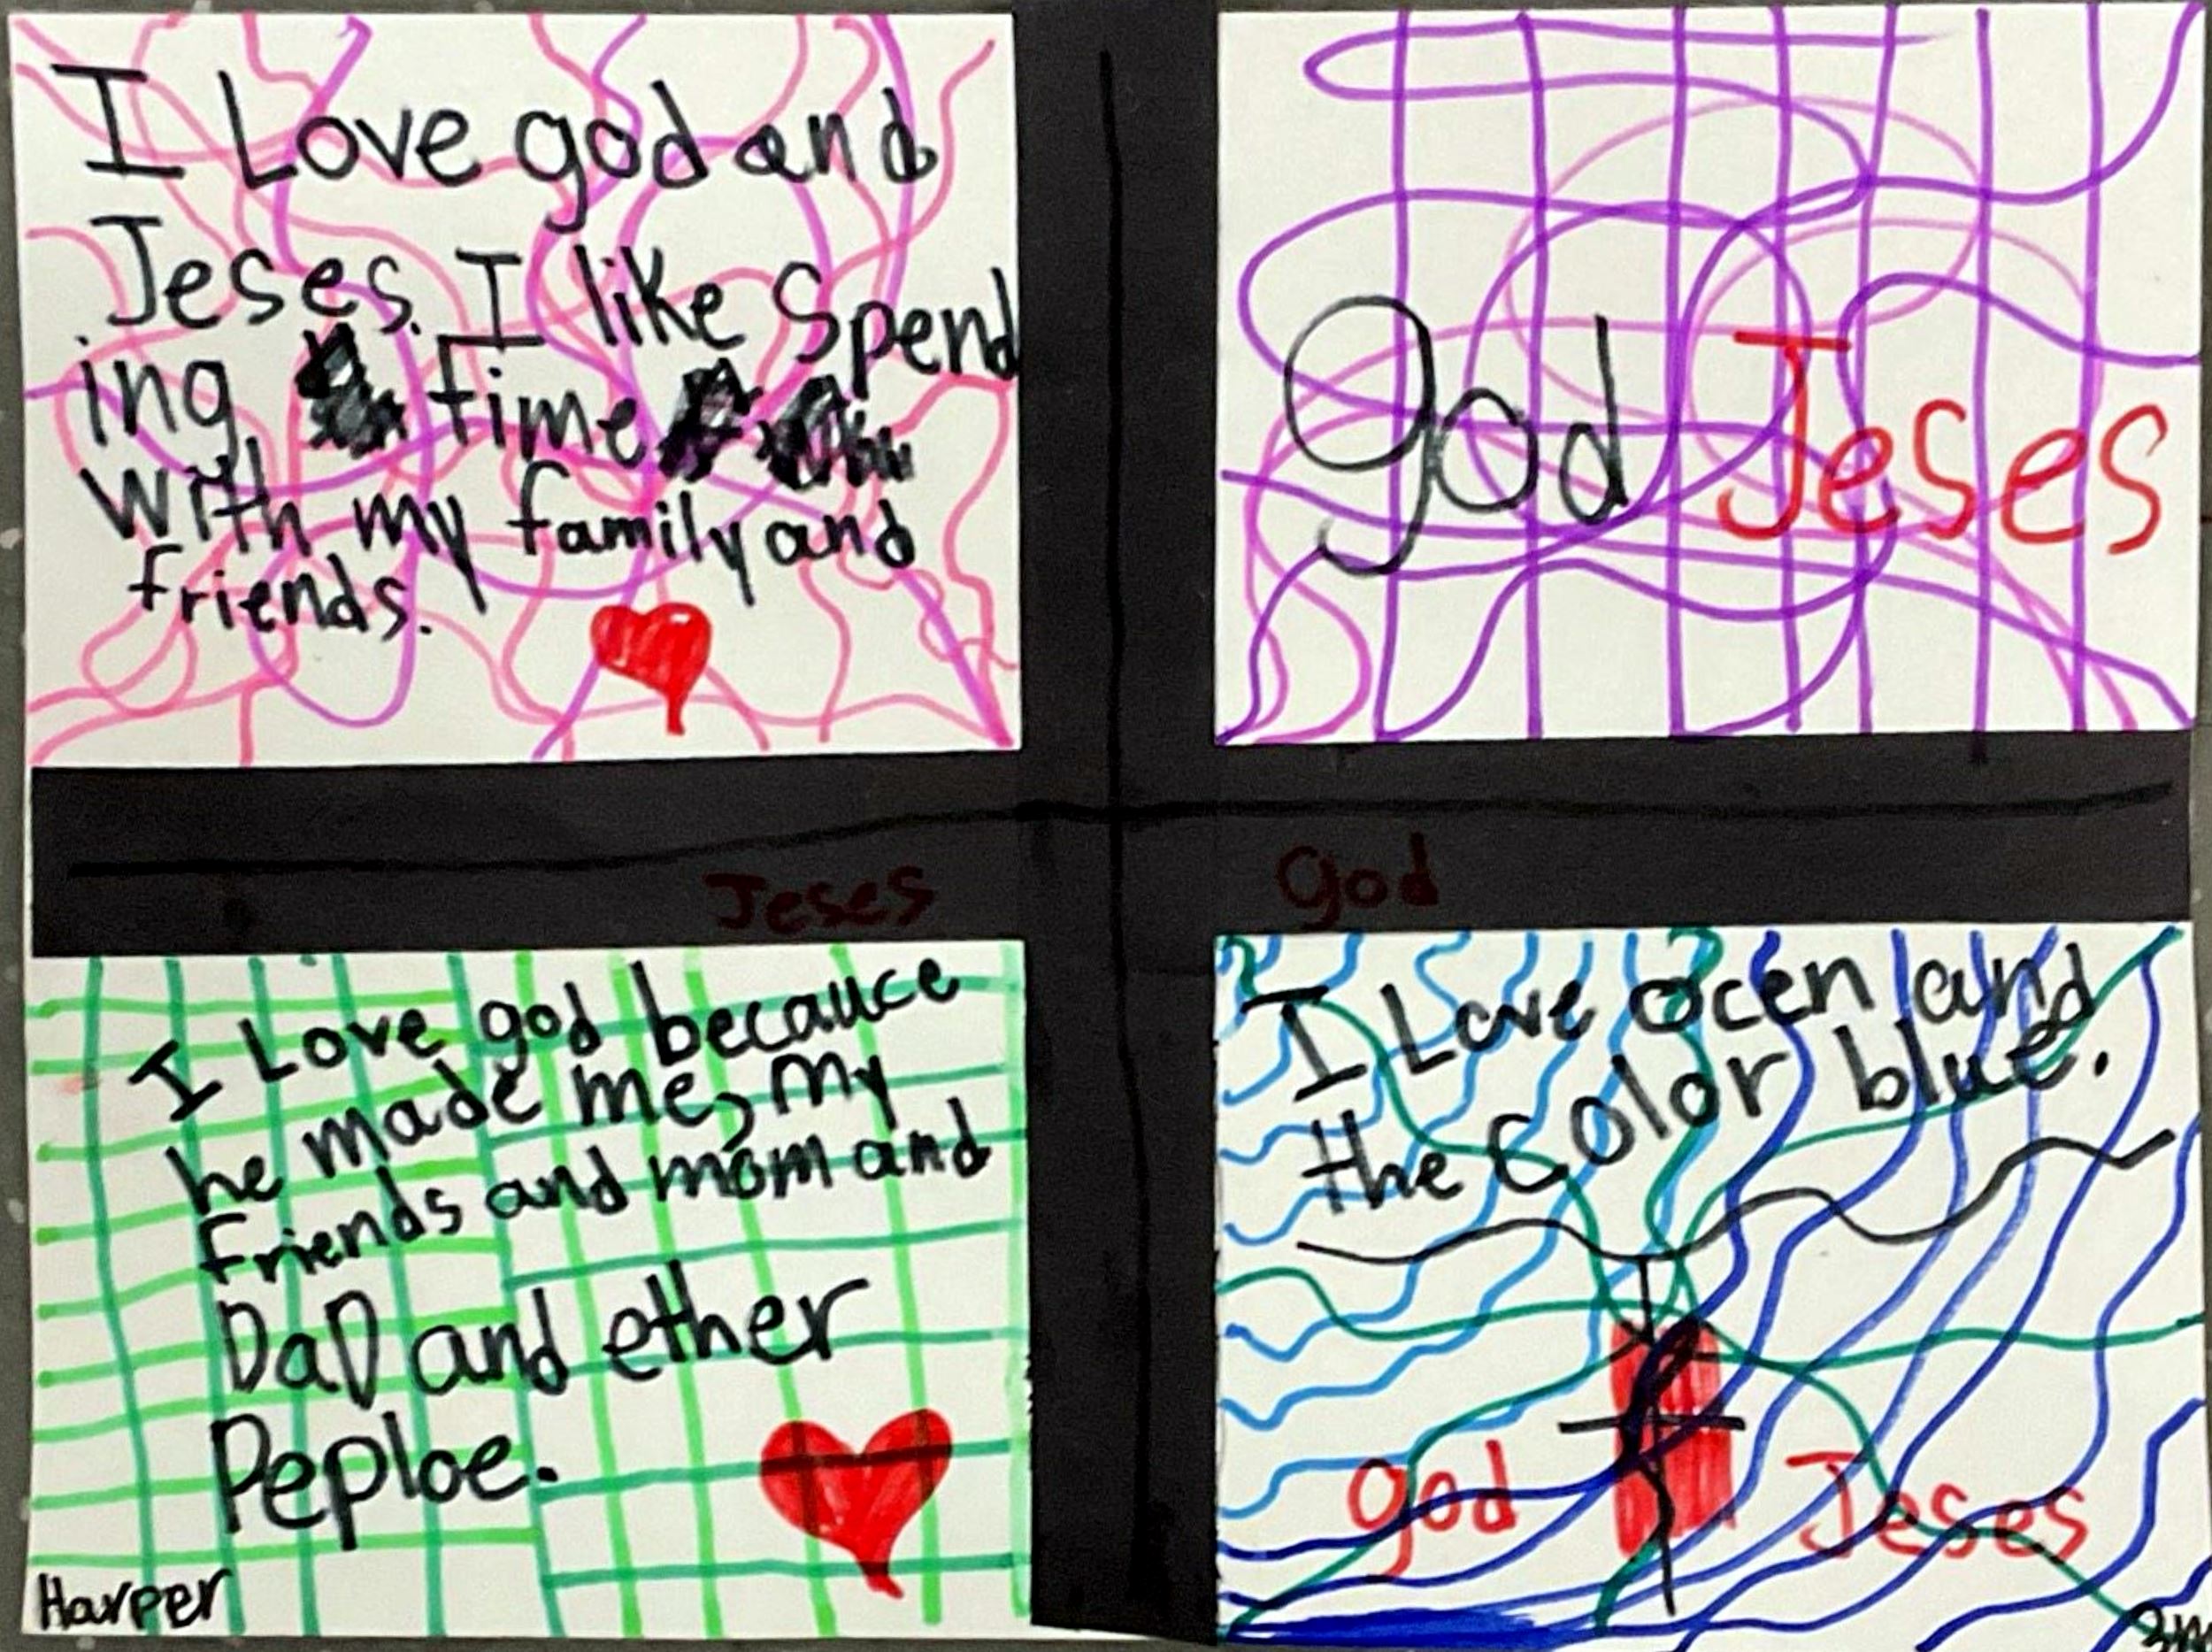 I Love god and
Jeses. I like Spend
ing time
with my family and
friends.
god Jeses
Jeses god
I Love god becauce
he made me, my
friends and mom and
DaD and ether
Peploe.
Harper
I Love ocen and
the Color blue.
god Jeses